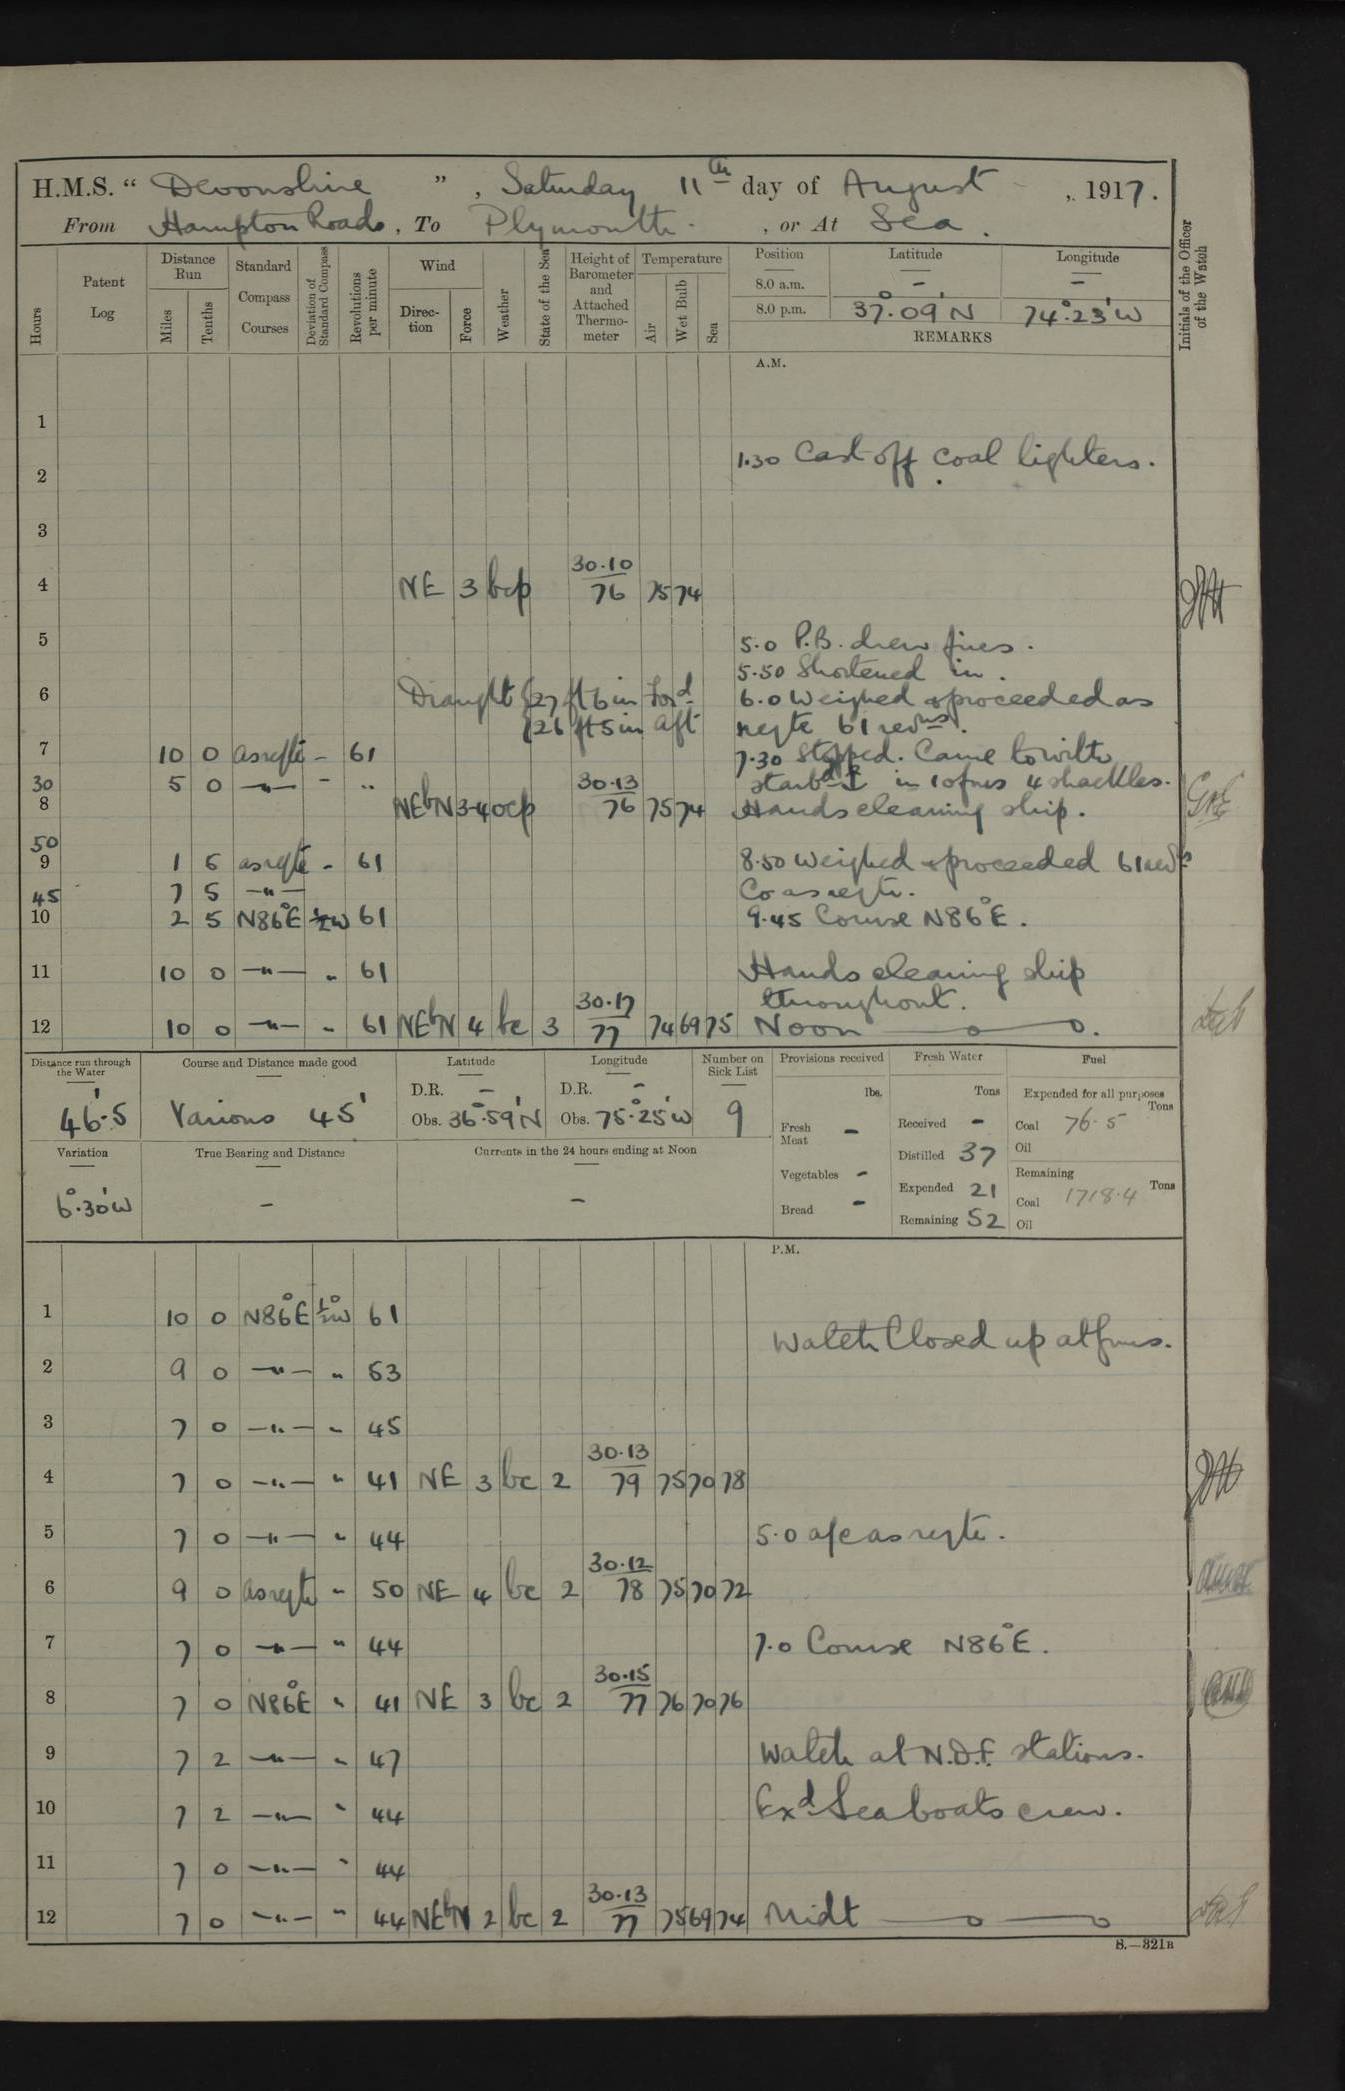 H.M.S. “ Devonshire ” , Saturday 11th day of August , 1917.
From Hampton Roads , To Plymouth . , or At Sea .
Hours
Patent Log
Distance Run
Miles
Tenths
Standard Compass Courses
Deviation of Standard Compass
Revolutions per minute
Wind
Direction
Force
Weather
State of the Sea
Height of Barometer and Attached Thermometer
Temperature
Air
Wet Bulb
Sea
Position Latitude Longitude
8.0 a.m. - -
8.0 p.m. 37°.09'N 74°.23'W
REMARKS
Initials of the Officer of the Watch
A.M.
1
1.30 Cast off coal lighters.
2
3
30.10
4 NE 3 bcp 76 75 74
5 5.0 P.B. drew fires.
5.50 Shortened in.
6 Draught { 27 ft 6 in For'd 6.0 Weighed & proceeded as
{ 26 ft 5 in aft reqte 61 revns.
7 10 0 as reqte - 61 7.30 Stopped. Came to with
30 5 0 —"— - " 30.13 starbd in 10 fms 4 shackles.
8 NEbN 3-4 ocp 76 75 74 Hands cleaning ship.
50
9 1 5 as reqte - 61 8.50 Weighed & proceeded 61 revs
45 7 5 —"— Co as reqte.
10 2 5 N86°E ½W 61 9.45 Course N86°E.
11 10 0 —"— " 61 Hands cleaning ship
30.17 throughout.
12 10 0 —"— " 61 NEbN 4 bc 3 77 74 69 75 Noon
Distance run through the Water
46'.5
Course and Distance made good
Various 45'
Latitude
D.R. -
Obs. 36°.59'N
Longitude
D.R. -
Obs. 75°.25'W
Number on Sick List
9
Provisions received
lbs.
Fresh Meat -
Vegetables -
Bread -
Fresh Water
Tons
Received -
Distilled 37
Expended 21
Remaining 52
Fuel
Expended for all purposes
Tons
Coal 76.5
Oil
Remaining
Tons
Coal 1718.4
Oil
Variation
6°.30'W
True Bearing and Distance
-
Currents in the 24 hours ending at Noon
-
P.M.
1 10 0 N86°E ½°W 61
Watch Closed up at guns.
2 9 0 —"— " 53
3 7 0 —"— " 45
30.13
4 7 0 —"— " 41 NE 3 bc 2 79 75 70 78
5 7 0 —"— " 44 5.0 a/c as reqte.
30.12
6 9 0 as reqte " 50 NE 4 bc 2 78 75 70 72
7 7 0 —"— " 44 7.0 Course N86°E.
30.15
8 7 0 N86°E " 41 NE 3 bc 2 77 76 70 76
9 7 2 —"— " 47 Watch at N.D.F. stations.
10 7 2 —"— " 44 Exd Seaboats crew.
11 7 0 —"— " 44
30.13
12 7 0 —"— " 44 NEbN 2 bc 2 77 75 69 74 Midt
S.—321B